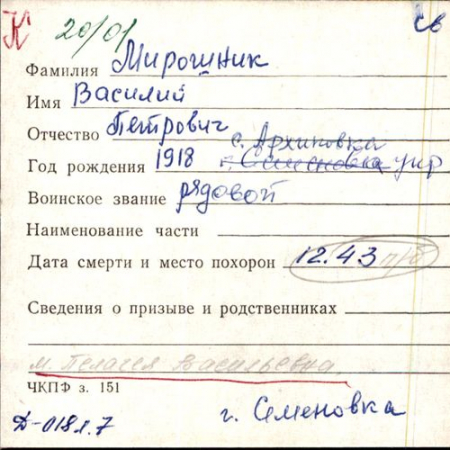 К 20/01 св
Фамилия Мирошник
Имя Василий
Отчество Петрович с. Архиповка
Год рождения 1918 г. Семеновка укр
Воинское звание рядовой
Наименование части
Дата смерти и место похорон 12.43 п/б
Сведения о призыве и родственниках
м. Пелагея Васильевна.
ЧКПФ з. 151
Д-018л.7 г. Семеновка